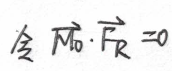 令 $\overrightarrow{M_0} \cdot \overrightarrow{F_R} = 0$